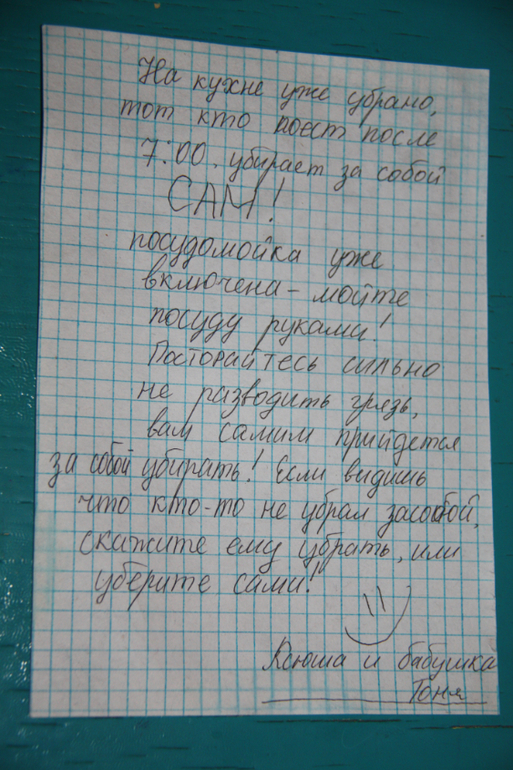 На кухне уже убрано,
тот кто поест после
7:00. убирает за собой
САМ!
посудомойка уже
включена - мойте
посуду руками!
Посторайтесь сильно
не разводить грязь,
вам самим прийдется
за собой убирать! Если видишь
что кто-то не убрал засобой,
скажите ему убрать, или
уберите сами!
Ксюша и бабушка
Тоня